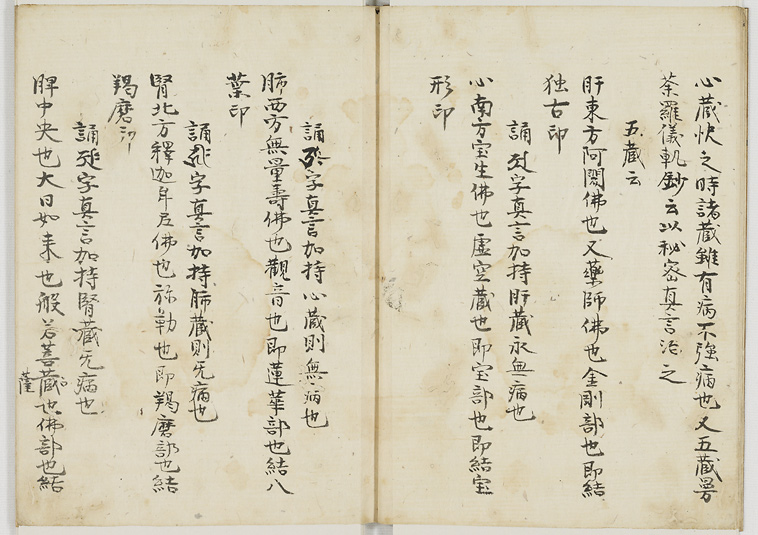 心蔵快之時諸蔵雖有病不強病也又五蔵曼
荼羅儀軌鈔云以秘密真言治之
五蔵云
肝東方阿閦佛也又藥師佛也金剛部也即結
独古印
誦字真言加持肝蔵永無病也
心南方宝生佛也虚空蔵也即宝部也即結宝
形印
誦字真言加持心蔵則無病也
肺西方無量壽佛也觀音也即蓮華部也結八
葉印
誦字真言加持肺蔵則无病也
腎北方釋迦牟尼佛也弥勒也即羯磨部也結
羯磨印
誦字真言加持腎蔵无病也
脾中央也大日如来也般若菩蔵也佛部也結
薩